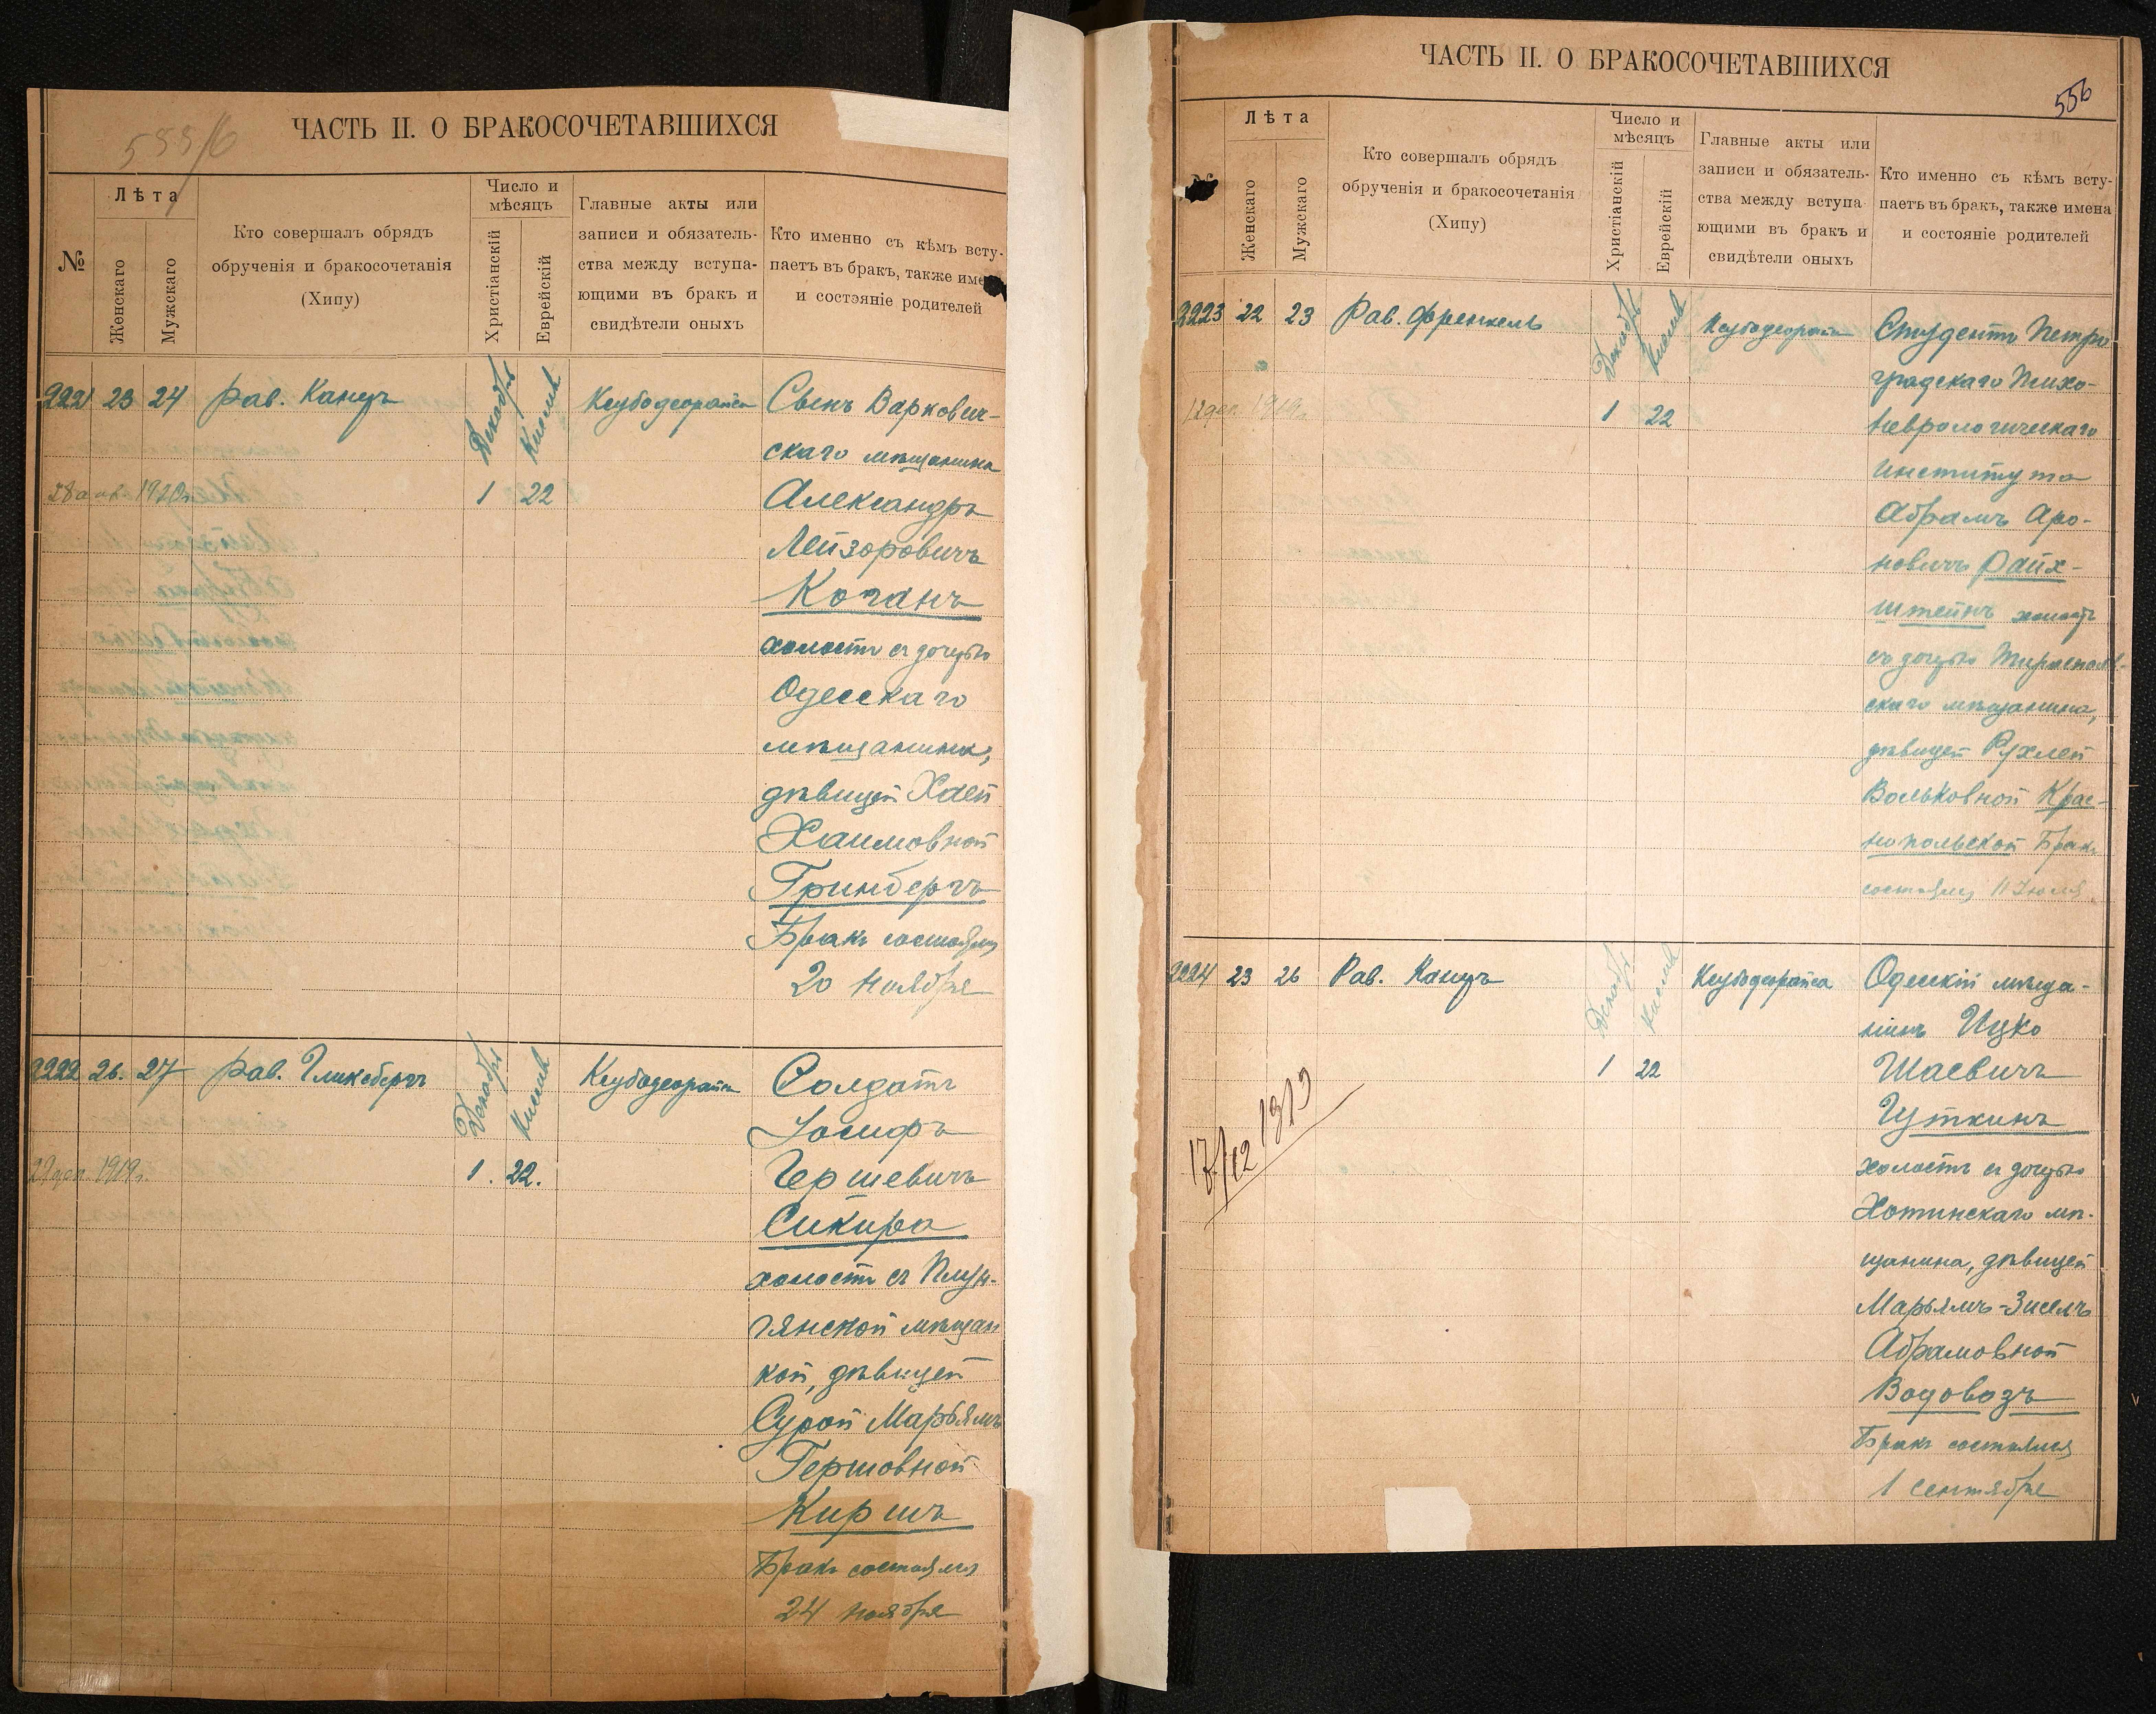 555/6
ЧАСТЬ II. О БРАКОСОЧЕТАВШИХСЯ
№
Лѣта
Женскаго
Мужскаго
Кто совершалъ обрядъ
обрученія и бракосочетанія
(Хипу)
Число и
мѣсяцъ
Христіанскій
Еврейскій
Главные акты или
записи и обязатель-
ства между вступа-
ющими въ бракъ и
свидѣтели оныхъ
Кто именно съ кѣмъ всту-
паетъ въ бракъ, также име
и состояніе родителей
2221 23 24 Рав. Канцъ Декабрь Кислев Ксубодеорайса Сынъ Варкович-
скаго мѣщанина
28 янв. 1920г. 1 22 Александръ
Лейзоровичъ
Коганъ
холостъ съ дочерью
Одесскаго
мѣщанина,
дѣвицей Хаей
Хаимовной
Гринбергъ
Бракъ состоялся
20 Ноября
2222 26. 27 Рав. Гликсбергъ Декабрь Кислев Ксубодеорайса Солдатъ
Іосифъ
29 дек. 1919г. 1. 22. Гершевичъ
Сикира
холостъ съ Плун-
гянской мѣщан
кой, дѣвицей
Сурой Марьямъ
Гершовной
Киршъ
Бракъ состоялся
24 ноября
ЧАСТЬ II. О БРАКОСОЧЕТАВШИХСЯ
556
Лѣта
Женскаго
Мужскаго
Кто совершалъ обрядъ
обрученія и бракосочетанія
(Хипу)
Число и
мѣсяцъ
Христіанскій
Еврейскій
Главные акты или
записи и обязатель-
ства между вступа
ющими въ бракъ и
свидѣтели оныхъ
Кто именно съ кѣмъ всту-
паетъ въ бракъ, также имена
и состояніе родителей
2223 22 23 Рав. Френкель Декабрь Кислев Ксубодеорайса Студентъ Петро
градскаго Психо-
12 дек. 1919г. 1 22 Неврологическаго
Института
Абрамъ Аро-
новичъ Райх-
штейнъ холостъ
съ дочерью Тираспол-
скаго мѣщанина,
дѣвицей Рухлей
Вольковной Крас-
нопольской Бракъ
состоялся 11 Іюля
2224 23 26 Рав. Канцъ Декабрь Кислев Ксубодеорайса Одесскій мѣща-
нинъ Ицко
1 22 Шаевичъ
17/12 1919 Гуткинъ
холостъ съ дочерью
Хотинскаго мѣ-
щанина, дѣвицей
Марьямъ-Зисель
Абрамовной
Водовозъ
Бракъ состоялся
1 Сентября